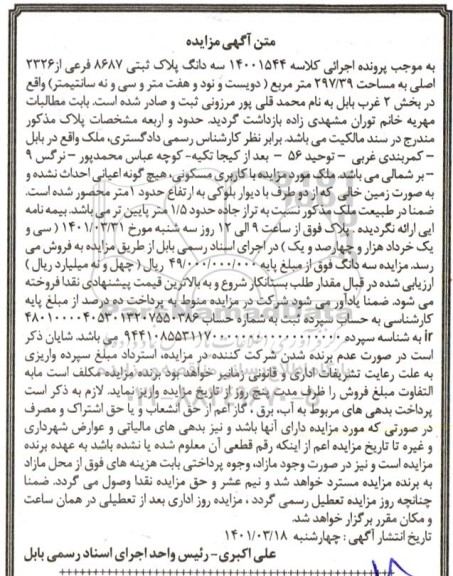 متن آگهی مزایده
به موجب پرونده اجرائی کلاسه ۱۴۰۰۱۵۴۴ سه دانگ پلاک ثبتی ۸۶۸۷ فرعی از۲۳۲۶
اصلی به مساحت ۲۹۷/۳۹ متر مربع ( دویست و نود و هفت متر و سی و نه سانتیمتر) واقع
در بخش ۲ غرب بابل به نام محمد قلی پور مرزونی ثبت و صادر شده است. بابت مطالبات
مهریه خانم توران مشهدی زاده بازداشت گردید. حدود و اربعه مشخصات پلاک مذکور
مندرج در سند مالکیت می باشد. برابر نظر کارشناس رسمی دادگستری، ملک واقع در بابل
– کمربندی غربی – توحید ۵۶ – بعد از کیجا تکیه- کوچه عباس محمدپور – نرگس ۹
– بر شمالی می باشد. ملک مورد مزایده با کاربری مسکونی، هیچ گونه اعیانی احداث نشده و
به صورت زمین خالی که از دو طرف با دیوار بلوکی به ارتفاع حدود ۱متر محصور شده است.
ضمنا در طبیعت ملک مذکور نسبت به تراز جاده حدود ۱/۵ متر پایین تر می باشد. بیمه نامه
ایی ارائه نگردیده . پلاک فوق از ساعت ۹ الی ۱۲ روز سه شنبه مورخ ۱۴۰۱/۰۳/۳۱ ( سی و
یک خرداد هزار و چهارصد و یک ) در اجرای اسناد رسمی بابل از طریق مزایده به فروش می
رسد. مزایده سه دانگ فوق از مبلغ پایه ۴۹/۰۰۰/۰۰۰/۰۰۰ ریال ( چهل و نه میلیارد ریال )
ارزیابی شده در قبال مقدار طلب بستانکار شروع و به بالاترین قیمت پیشنهادی نقدا فروخته
می شود. ضمنا یادآور می شود شرکت در مزایده منوط به پرداخت ده درصد از مبلغ پایه
کارشناسی به حساب سپرده ثبت به شماره حساب
ir به شناسه سپرده می باشد. شایان ذکر
است در صورت عدم برنده شدن شرکت کننده در مزایده، استرداد مبلغ سپرده واریزی
به علت رعایت تشریفات اداری و قانونی زمانبر خواهد بود برنده مزایده مکلف است مابه
التفاوت مبلغ فروش را ظرف مدت پنج روز از تاریخ مزایده واریز نماید. لازم به ذکر است
پرداخت بدهی های مربوط به آب، برق ، گاز اعم از حق انشعاب و یا حق اشتراک و مصرف
در صورتی که مورد مزایده دارای آنها باشد و نیز بدهی های مالیاتی و عوارض شهرداری
و غیره تا تاریخ مزایده اعم از اینکه رقم قطعی آن معلوم شده یا نشده باشد به عهده برنده
مزایده است و نیز در صورت وجود مازاد، وجوه پرداختی بابت هزینه های فوق از محل مازاد
به برنده مزایده مسترد خواهد شد و نیم عشر و حق مزایده نقدا وصول می گردد. ضمنا
چنانچه روز مزایده تعطیل رسمی گردد ، مزایده روز اداری بعد از تعطیلی در همان ساعت
و مکان مقرر برگزار خواهد شد.
تاریخ انتشار آگهی : چهارشنبه ۱۴۰۱/۰۳/۱۸
علی اکبری- رئیس واحد اجرای اسناد رسمی بابل